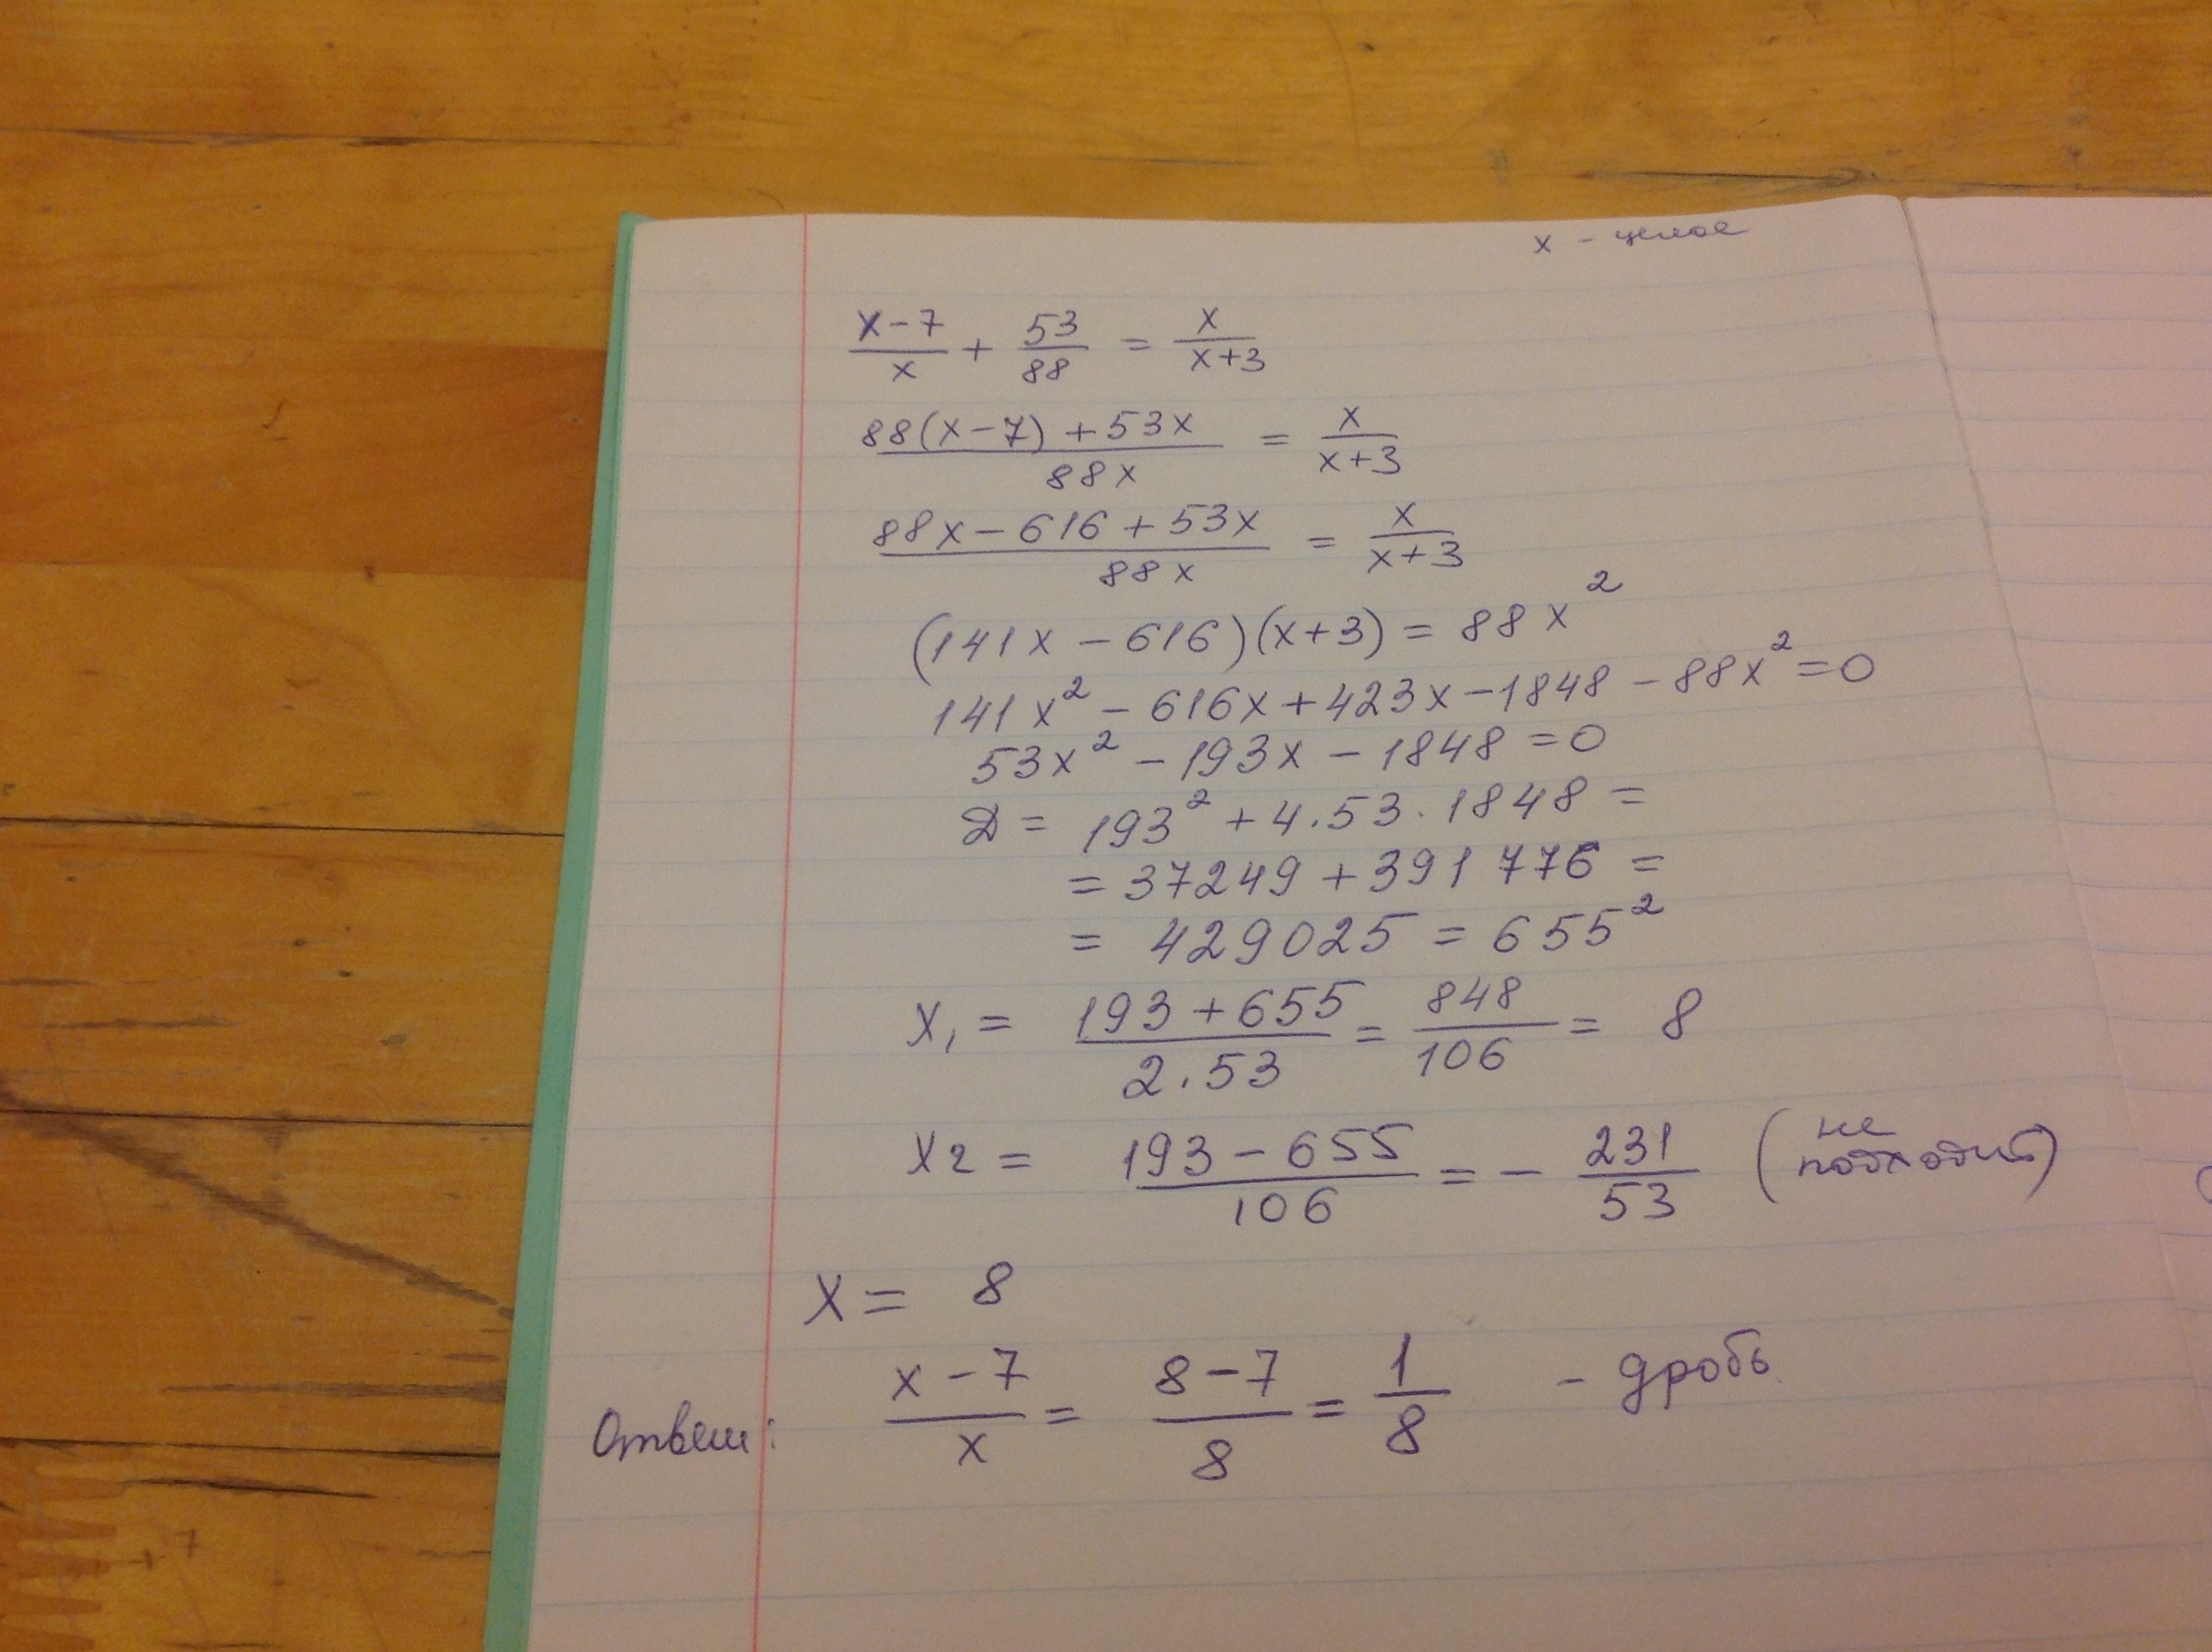 x - целое
x-7/x + 53/88 = x/x+3
88(x-7)+53x/88x = x/x+3
88x-616+53x/88x = x/x+3
(141x-616)(x+3) = 88x²
141x² - 616x + 423x - 1848 - 88x² = 0
53x² - 193x - 1848 = 0
D = 193² + 4·53·1848 =
= 37249 + 391776 =
= 429025 = 655²
x₁ = 193+655/2·53 = 848/106 = 8
x₂ = 193-655/106 = - 231/53 (не подходит)
x = 8
Ответ: x-7/x = 8-7/8 = 1/8 - дробь